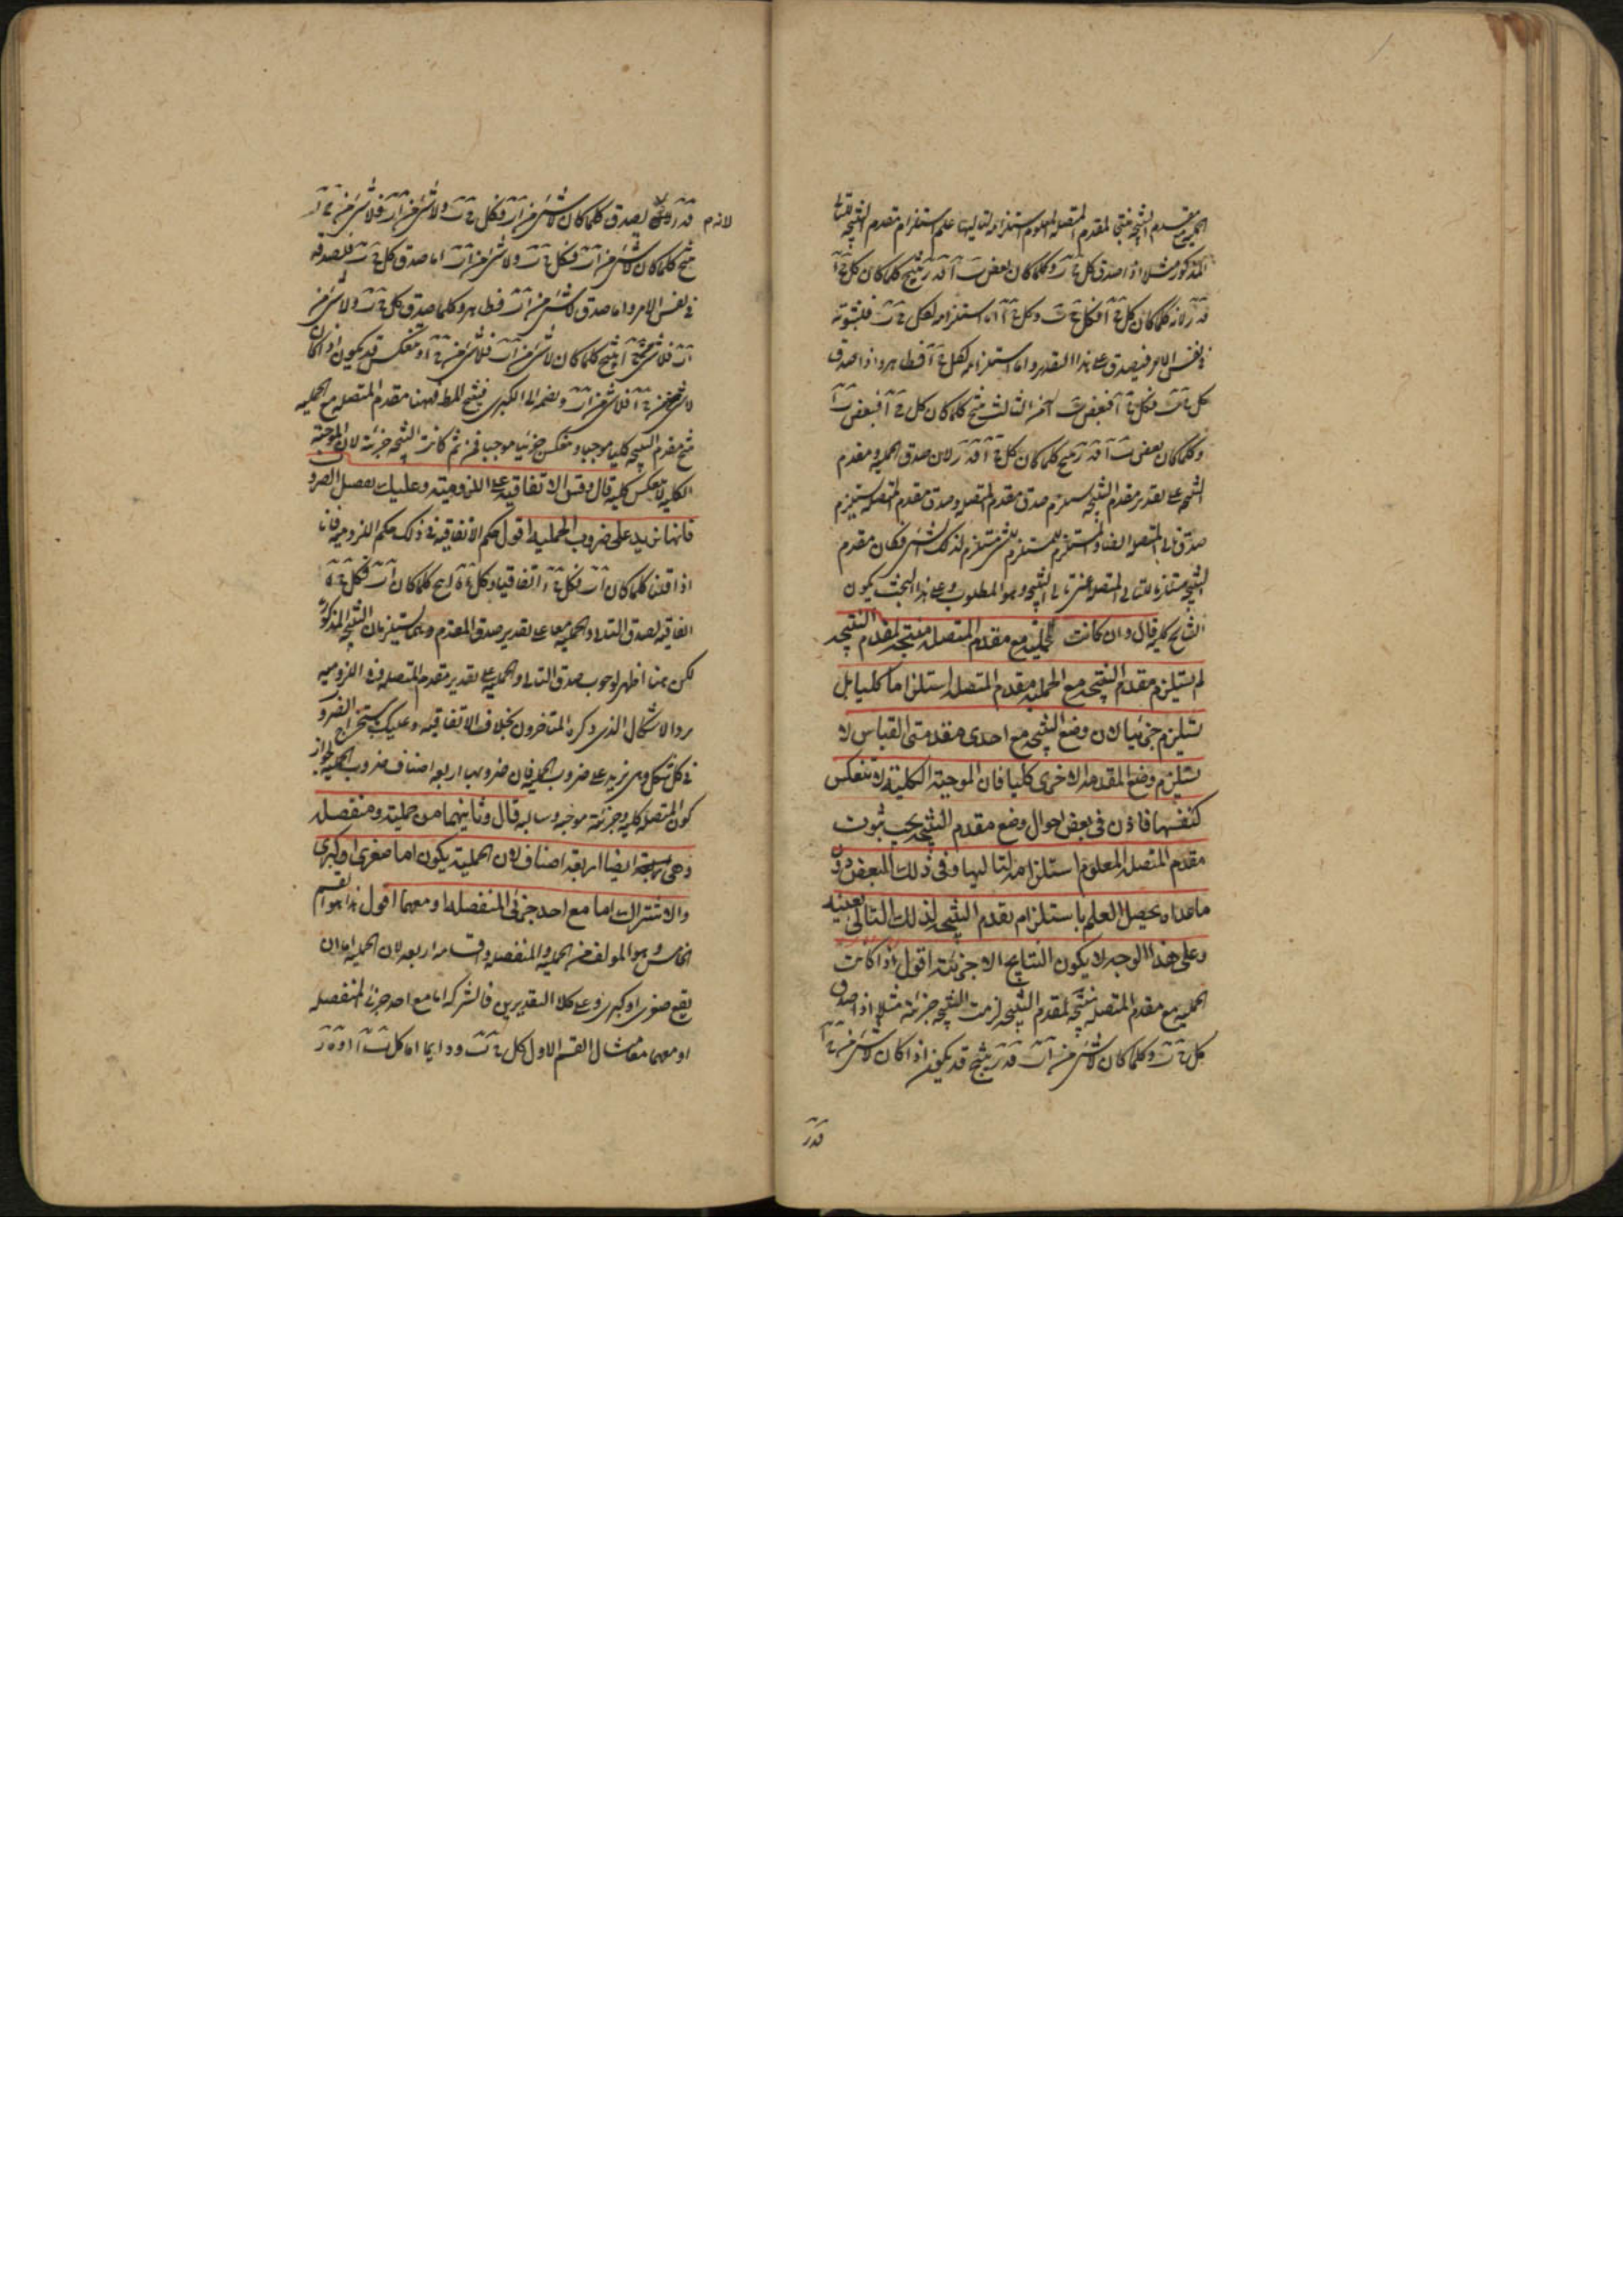 الحملية مع مقدم النتيجة منتجا لمقدم المتصلة المعلوم استلزامه لتاليها علم استلزام مقدم النتيجة للتالى
المذكور مثلا اذا صدق كل ج ب وكلما كان بعض ب آ فد ر ينتج كلما كان كل ج آ
فد ر لانه كلما كان كل ج آ فكل ج ب وكل ج آ اما استلزامه لكل ج ب فلثبوته
فى نفس الامر فيصدق على هذا التقدير واما استلزامه لكل ج آ فظاهر واذا صدق
كل ج ب فكل ج آ فبعض ب آ من الثالث ينتج كلما كان كل ج آ فبعض ب آ
وكلما كان بعض ب آ فد ر ينتج كلما كان كل ج آ فد ر لان صدق الحملية ومقدم
النتيجة على تقدير مقدم النتيجة يستلزم صدق مقدم المتصلة وصدق مقدم المتصلة يستلزم
صدق تالى المتصلة ايضا والمستلزم للمستلزم للشىء مستلزم لذلك الشىء فكان مقدم
النتيجة مستلزما لتالى المتصلة اعنى تالى النتيجة وهو المطلوب وعلى هذا البحث يكون
النتايج كلية قال وان كانت الحملية مع مقدم المتصلة منتجة لمقدم النتيجة
لم يستلزم مقدم النتيجة مع الحملية مقدم المتصلة استلزاما كليا بل
يستلزم جزئيا لان وضع النتيجة مع احدى مقدمتى القياس لا
يستلزم وضع المقدمة الاخرى كليا فان الموجبة الكلية لا تنعكس
كنفسها فاذن فى بعض احوال وضع مقدم النتيجة يجب ثبوت
مقدم المتصلة المعلوم استلزامه لتاليها وفى ذلك البعض دون
ماعداه يحصل العلم باستلزام مقدم النتيجة لذلك التالى بعينه
وعلى هذا الوجه لا يكون النتايج الا جزئية اقول اذا كانت
الحملية مع مقدم المتصلة منتجة لمقدم النتيجة لزمت النتيجة جزئية مثلا اذا صدق
كل ج ب وكلما كان لا شىء من آ ب فد ر ينتج قد يكون اذا كان لا شىء من ج آ
فد ر
فد ر لانه يصدق كلما كان لا شىء من آ ب فكل ج ب ولا شىء من آ ب فلا شىء من ج آ
ينتج كلما كان لا شىء من آ ب فكل ج ب ولا شىء من آ ب اما صدق كل ج ب فلصدقه
فى نفس الامر واما صدق لا شىء من آ ب فظاهر وكلما صدق كل ج ب ولا شىء من
آ ب فلا شىء من ج آ ينتج كلما كان لا شىء من آ ب فلا شىء من ج آ وتنعكس قد يكون اذا كان
لا شىء من ج آ فلا شىء من آ ب ونضمه الى الكبرى فينتج المط فههنا مقدم المتصلة مع الحملية
ينتج مقدم النتيجة كليا موجبا وتنعكس جزئيا موجبا فمن ثم كانت النتيجة جزئية لان الموجبة
الكلية لا تنعكس كلية قال وقس الاتفاقية على اللزومية وعليك بتفصيل الضروب
فانها تزيد على ضروب الحملية اقول حكم الاتفاقية فى ذلك حكم اللزومية فانا
اذا قلنا كلما كان آ ب فكل ج د اتفاقيا وكل د ه انتج كلما كان آ ب فكل ج ه
اتفاقية لصدق التالى والحملية معا على تقدير صدق المقدم وهما يستلزمان النتيجة المذكورة
لكن هنا اظهر لوجوب صدق التالى والحملية على تقدير مقدم المتصلة فى اللزومية
يرد الاشكال الذى ذكره المتاخرون بخلاف الاتفاقية وعليك باستخراج الضروب
فى كل شكل وهى تزيد على ضروب الحملية فان ضروبها اربعة اضعاف ضروب الحملية لجواز
كون المتصلة كلية وجزئية موجبة وسالبة قال وثانيهما من حملية ومنفصلة
وهى ايضا اربعة اصناف لان الحملية يكون اما صغرى او كبرى
والاشتراك اما مع احد جزئى المنفصلة او معهما اقول هذا هو القسم
الخامس وهو المولف من الحملية والمنفصلة واقسامه اربعة لان الحملية اما ان
يقع صغرى او كبرى وعلى كلا التقديرين فالشركة اما مع احد جزئى المنفصلة
او معهما مثال القسم الاول كل ج ب ودايما اما كل ب آ او ه ر